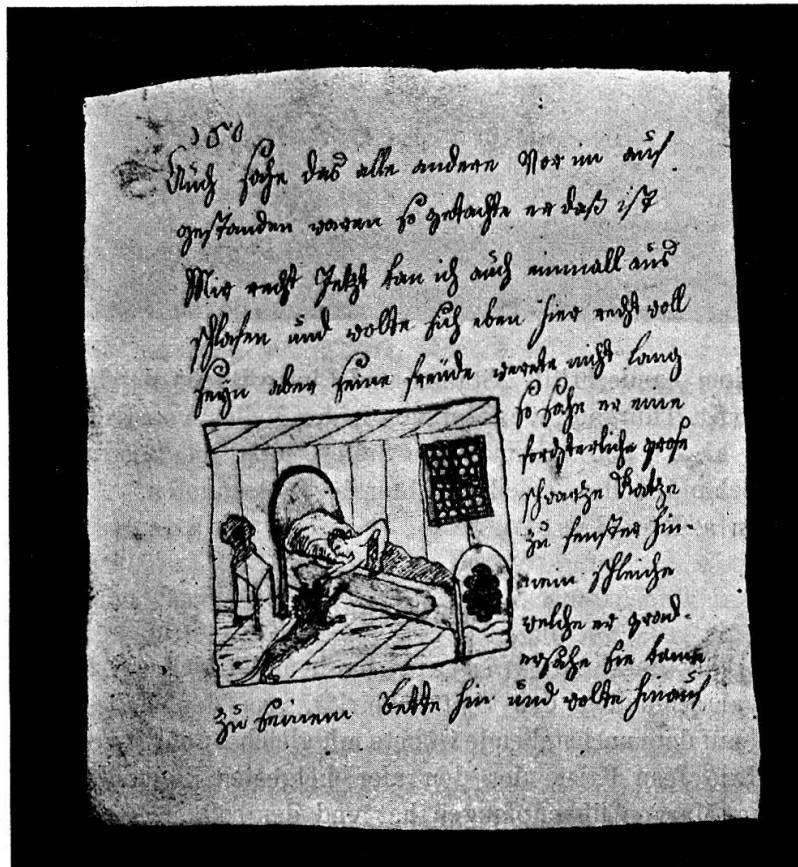 160
Auch sahe das alle andere Vor im auf
gestanden waren so gedachte er daß ist
Mir recht Jetzt kan ich auch einmall aus
schlafen und wolte sich eben hier recht woll
seyn aber seine freüde werete nicht lang
so sahe er eine
forchterliche große
schwartze Katze
zu fenster hin-
nein schleiche
welche er
ersahe sie kame
zu seinem Bette hin und wolte hinauf